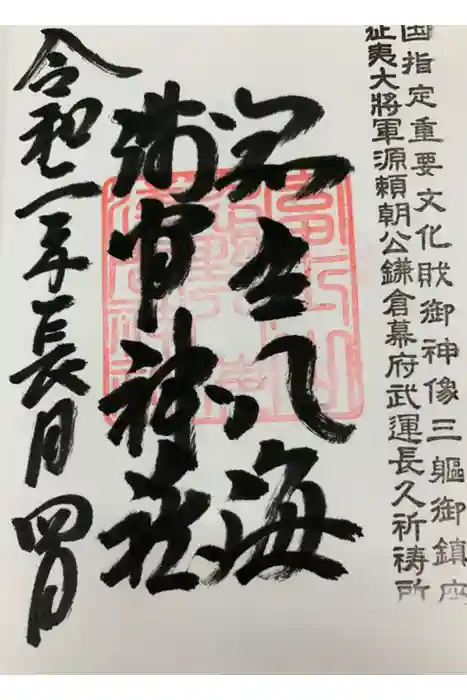 国指定重要文化財御神像三軀御鎮座
征夷大將軍源賴朝公鎌倉幕府武運長久祈祷所
冨士八海
淺間神社
令和二年長月四日